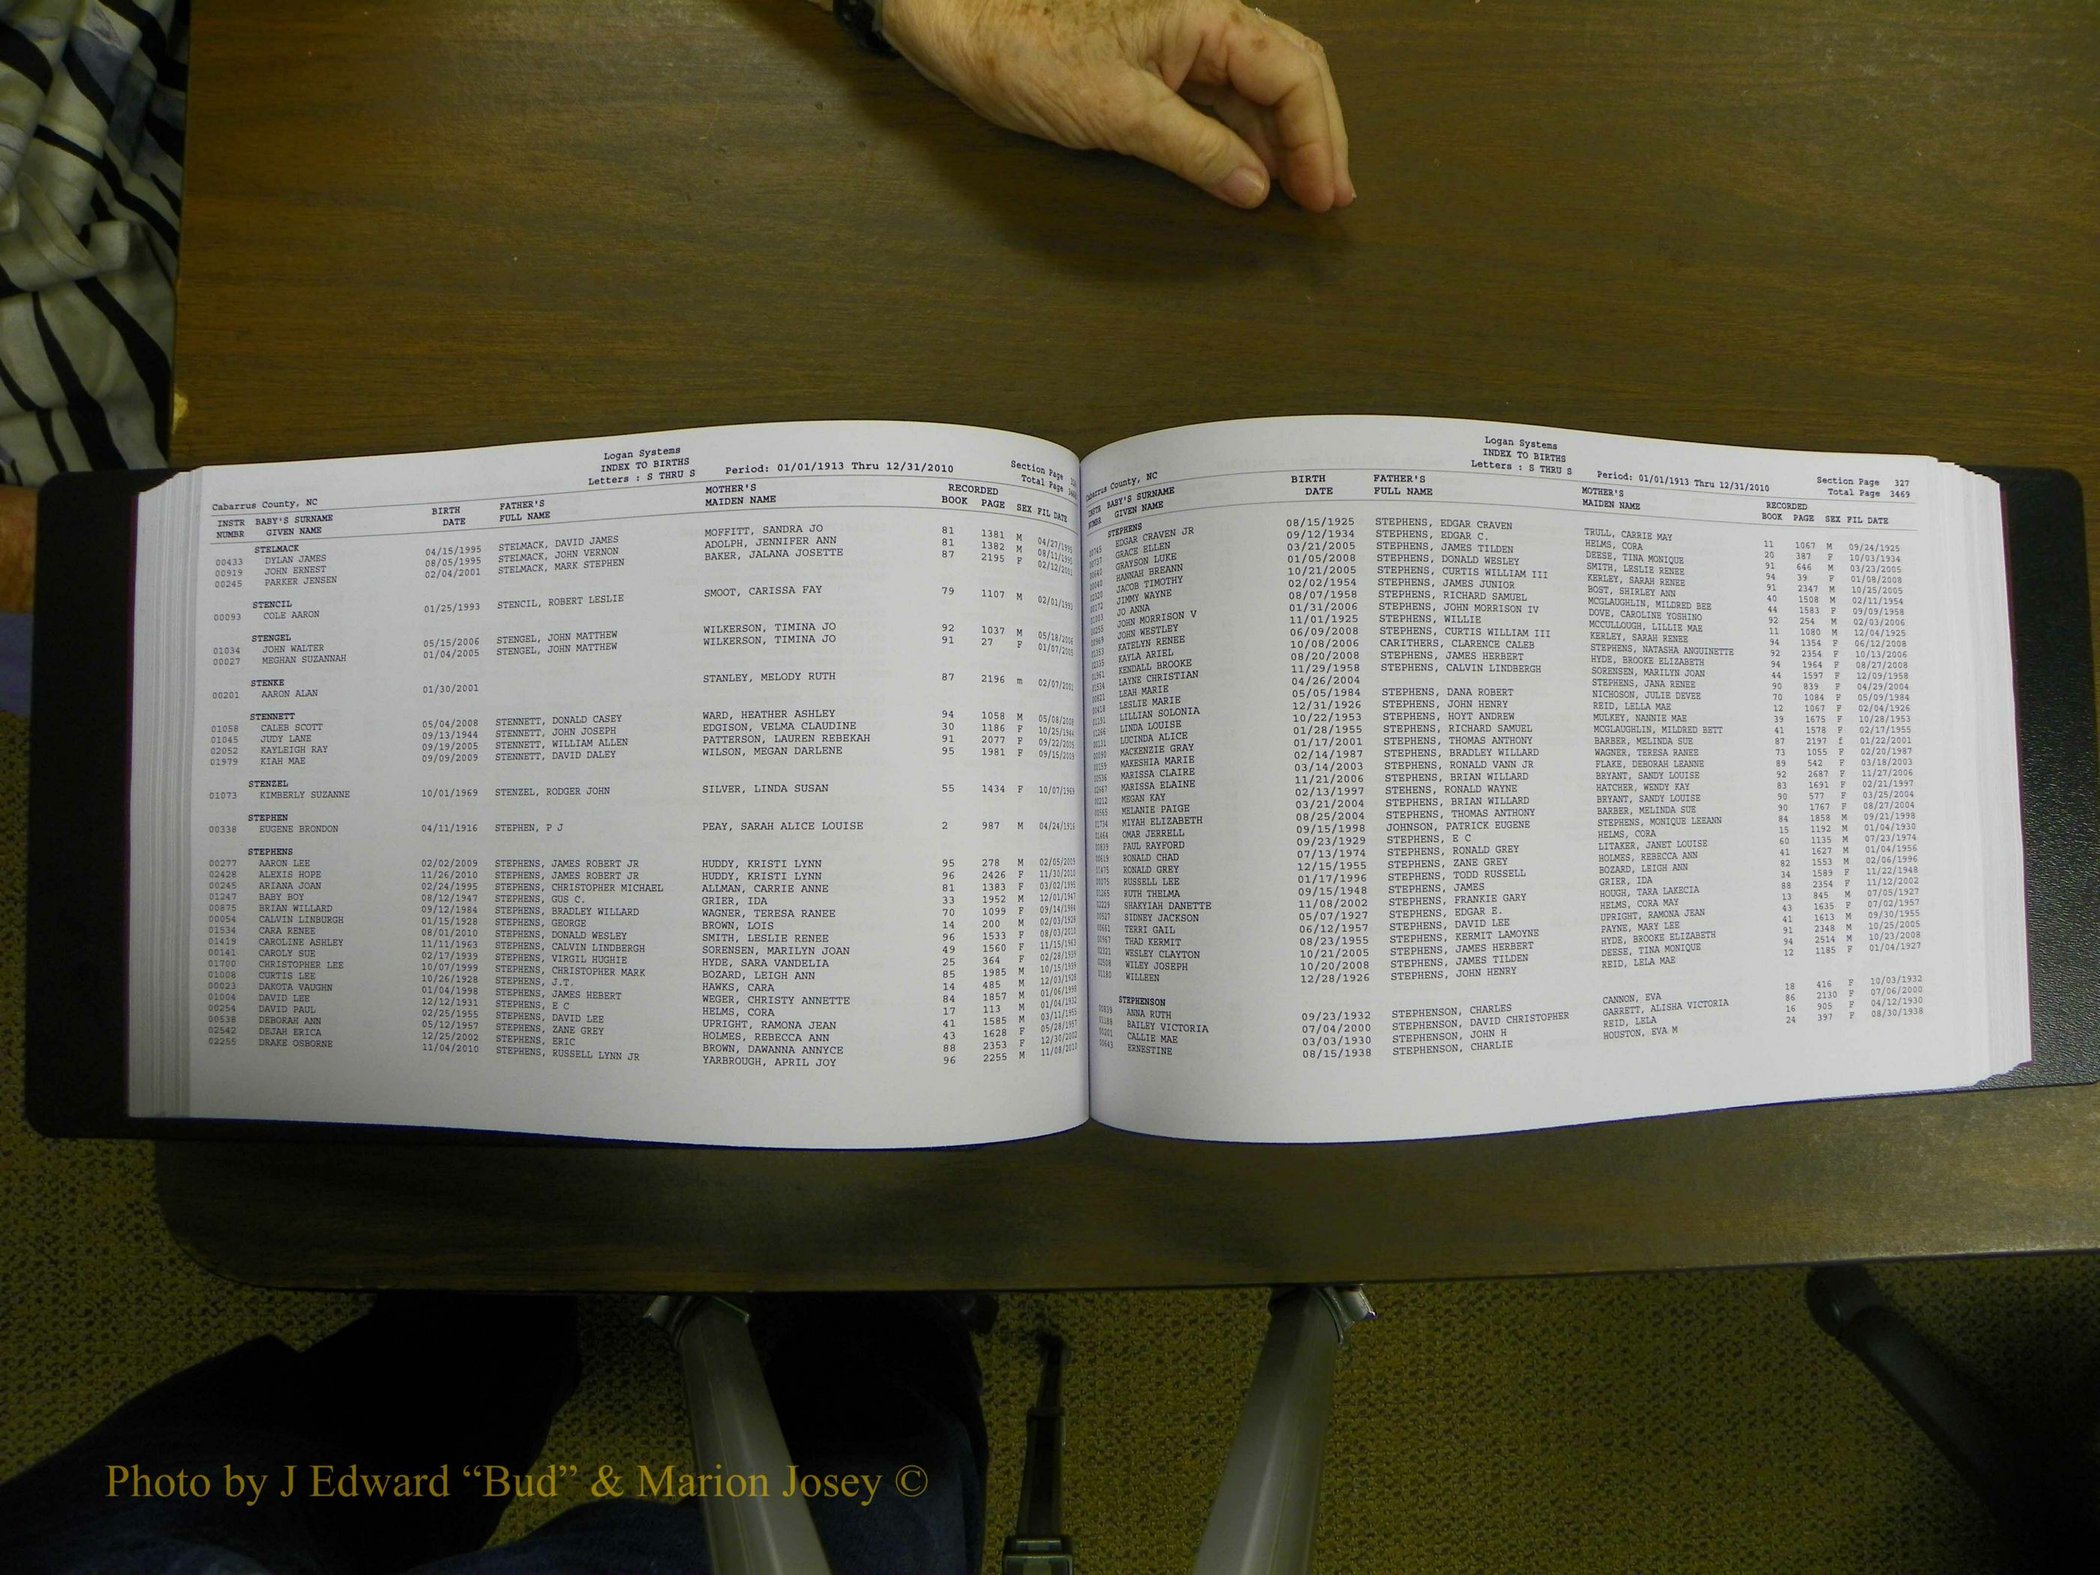 Logan Systems
INDEX TO BIRTHS
Letters : S THRU S
Period: 01/01/1913 Thru 12/31/2010
Section Page
Total Page
Cabarrus County, NC
INSTR BABY'S SURNAME BIRTH FATHER'S MOTHER'S RECORDED
NUMBR GIVEN NAME DATE FULL NAME MAIDEN NAME BOOK PAGE SEX FIL DATE
STELMACK
00433 DYLAN JAMES 04/15/1995 STELMACK, DAVID JAMES MOFFITT, SANDRA JO 81 1381 M 04/27/1995
00919 JOHN ERNEST 08/05/1995 STELMACK, JOHN VERNON ADOLPH, JENNIFER ANN 81 1382 M 08/11/1995
00245 PARKER JENSEN 02/04/2001 STELMACK, MARK STEPHEN BAKER, JALANA JOSETTE 87 2195 F 02/12/2001
STENCIL
00093 COLE AARON 01/25/1993 STENCIL, ROBERT LESLIE SMOOT, CARISSA FAY 79 1107 M 02/01/1993
STENGEL
01034 JOHN WALTER 05/15/2006 STENGEL, JOHN MATTHEW WILKERSON, TIMINA JO 92 1037 M 05/18/2006
00027 MEGHAN SUZANNAH 01/04/2005 STENGEL, JOHN MATTHEW WILKERSON, TIMINA JO 91 27 F 01/07/2005
STENKE
00201 AARON ALAN 01/30/2001 STANLEY, MELODY RUTH 87 2196 m 02/07/2001
STENNETT
01058 CALEB SCOTT 05/04/2008 STENNETT, DONALD CASEY WARD, HEATHER ASHLEY 94 1058 M 05/08/2008
01045 JUDY LANE 09/13/1944 STENNETT, JOHN JOSEPH EDGISON, VELMA CLAUDINE 30 1186 F 10/25/1944
02052 KAYLEIGH RAY 09/19/2005 STENNETT, WILLIAM ALLEN PATTERSON, LAUREN REBEKAH 91 2077 F 09/22/2005
01979 KIAH MAE 09/09/2009 STENNETT, DAVID DALEY WILSON, MEGAN DARLENE 95 1981 F 09/15/2009
STENZEL
01073 KIMBERLY SUZANNE 10/01/1969 STENZEL, RODGER JOHN SILVER, LINDA SUSAN 55 1434 F 10/07/1969
STEPHEN
00338 EUGENE BRONDON 04/11/1916 STEPHEN, P J PEAY, SARAH ALICE LOUISE 2 987 M 04/24/1916
STEPHENS
00277 AARON LEE 02/02/2009 STEPHENS, JAMES ROBERT JR HUDDY, KRISTI LYNN 95 278 M 02/05/2009
02428 ALEXIS HOPE 11/26/2010 STEPHENS, JAMES ROBERT JR HUDDY, KRISTI LYNN 96 2426 F 11/30/2010
00245 ARIANA JOAN 02/24/1995 STEPHENS, CHRISTOPHER MICHAEL ALLMAN, CARRIE ANNE 81 1383 F 03/02/1995
01247 BABY BOY 08/12/1947 STEPHENS, GUS C. GRIER, IDA 33 1952 M 12/01/1947
00875 BRIAN WILLARD 09/12/1984 STEPHENS, BRADLEY WILLARD WAGNER, TERESA RANEE 70 1099 F 09/14/1984
00054 CALVIN LINBURGH 01/15/1928 STEPHENS, GEORGE BROWN, LOIS 14 200 M 02/03/1928
01534 CARA RENEE 08/01/2010 STEPHENS, DONALD WESLEY SMITH, LESLIE RENEE 96 1533 F 08/03/2010
01419 CAROLINE ASHLEY 11/11/1963 STEPHENS, CALVIN LINDBERGH SORENSEN, MARILYN JOAN 49 1560 F 11/15/1963
00141 CAROLY SUE 02/17/1939 STEPHENS, VIRGIL HUGHIE HYDE, SARA VANDELIA 25 364 F 02/28/1939
01700 CHRISTOPHER LEE 10/07/1999 STEPHENS, CHRISTOPHER MARK BOZARD, LEIGH ANN 85 1985 M 10/15/1999
01008 CURTIS LEE 10/26/1928 STEPHENS, J.T. HAWKS, CARA 14 485 M 12/03/1928
00023 DAKOTA VAUGHN 01/04/1998 STEPHENS, JAMES HEBERT WEGER, CHRISTY ANNETTE 84 1857 M 01/06/1998
01004 DAVID LEE 12/12/1931 STEPHENS, E C HELMS, CORA 17 113 M 01/04/1932
00254 DAVID PAUL 02/25/1955 STEPHENS, DAVID LEE UPRIGHT, RAMONA JEAN 41 1585 M 03/11/1955
00538 DEBORAH ANN 05/12/1957 STEPHENS, ZANE GREY HOLMES, REBECCA ANN 43 1628 F 05/28/1957
02542 DEJAH ERICA 12/25/2002 STEPHENS, ERIC BROWN, DAWANNA ANNYCE 88 2353 F 12/30/2002
02255 DRAKE OSBORNE 11/04/2010 STEPHENS, RUSSELL LYNN JR YARBROUGH, APRIL JOY 96 2255 M 11/08/2010
Logan Systems
INDEX TO BIRTHS
Letters : S THRU S
Period: 01/01/1913 Thru 12/31/2010
Section Page 327
Total Page 3469
Cabarrus County, NC
INSTR BABY'S SURNAME BIRTH FATHER'S MOTHER'S RECORDED
NUMBR GIVEN NAME DATE FULL NAME MAIDEN NAME BOOK PAGE SEX FIL DATE
STEPHENS
EDGAR CRAVEN JR 08/15/1925 STEPHENS, EDGAR CRAVEN TRULL, CARRIE MAY 11 1067 M 09/24/1925
GRACE ELLEN 09/12/1934 STEPHENS, EDGAR C. HELMS, CORA 20 387 F 10/03/1934
GRAYSON LUKE 03/21/2005 STEPHENS, JAMES TILDEN DEESE, TINA MONIQUE 91 646 M 03/23/2005
HANNAH BREANN 01/05/2008 STEPHENS, DONALD WESLEY SMITH, LESLIE RENEE 94 39 F 01/08/2008
JACOB TIMOTHY 10/21/2005 STEPHENS, CURTIS WILLIAM III KERLEY, SARAH RENEE 91 2347 M 10/25/2005
JIMMY WAYNE 02/02/1954 STEPHENS, JAMES JUNIOR BOST, SHIRLEY ANN 40 1508 M 02/11/1954
JO ANNA 08/07/1958 STEPHENS, RICHARD SAMUEL MCGLAUGHLIN, MILDRED BEE 44 1583 F 09/09/1958
JOHN MORRISON V 01/31/2006 STEPHENS, JOHN MORRISON IV DOVE, CAROLINE YOSHINO 92 254 M 02/03/2006
JOHN WESTLEY 11/01/1925 STEPHENS, WILLIE MCCULLOUGH, LILLIE MAE 11 1080 M 12/04/1925
KATELYN RENEE 06/09/2008 STEPHENS, CURTIS WILLIAM III KERLEY, SARAH RENEE 94 1354 F 06/12/2008
KAYLA ARIEL 10/08/2006 CARITHERS, CLARENCE CALEB STEPHENS, NATASHA ANGUINETTE 92 2354 F 10/13/2006
KENDALL BROOKE 08/20/2008 STEPHENS, JAMES HERBERT HYDE, BROOKE ELIZABETH 94 1964 F 08/27/2008
LAYNE CHRISTIAN 11/29/1958 STEPHENS, CALVIN LINDBERGH SORENSEN, MARILYN JOAN 44 1597 F 12/09/1958
LEAH MARIE 04/26/2004 STEPHENS, JANA RENEE 90 839 F 04/29/2004
LESLIE MARIE 05/05/1984 STEPHENS, DANA ROBERT NICHOSON, JULIE DEVEE 70 1084 F 05/09/1984
LILLIAN SOLONIA 12/31/1926 STEPHENS, JOHN HENRY REID, LELLA MAE 12 1067 F 02/04/1926
LINDA LOUISE 10/22/1953 STEPHENS, HOYT ANDREW MULKEY, NANNIE MAE 39 1675 F 10/28/1953
LUCINDA ALICE 01/28/1955 STEPHENS, RICHARD SAMUEL MCGLAUGHLIN, MILDRED BETT 41 1578 F 02/17/1955
MACKENZIE GRAY 01/17/2001 STEPHENS, THOMAS ANTHONY BARBER, MELINDA SUE 87 2197 f 01/22/2001
MAKESHIA MARIE 02/14/1987 STEPHENS, BRADLEY WILLARD WAGNER, TERESA RANEE 73 1055 F 02/20/1987
MARISSA CLAIRE 03/14/2003 STEPHENS, RONALD VANN JR FLAKE, DEBORAH LEANNE 89 542 F 03/18/2003
MARISSA ELAINE 11/21/2006 STEPHENS, BRIAN WILLARD BRYANT, SANDY LOUISE 92 2687 F 11/27/2006
MEGAN KAY 02/13/1997 STEHENS, RONALD WAYNE HATCHER, WENDY KAY 83 1691 F 02/21/1997
MELANIE PAIGE 03/21/2004 STEPHENS, BRIAN WILLARD BRYANT, SANDY LOUISE 90 577 F 03/25/2004
MIYAH ELIZABETH 08/25/2004 STEPHENS, THOMAS ANTHONY BARBER, MELINDA SUE 90 1767 F 08/27/2004
OMAR JERRELL 09/15/1998 JOHNSON, PATRICK EUGENE STEPHENS, MONIQUE LEEANN 84 1858 M 09/21/1998
PAUL RAYFORD 09/23/1929 STEPHENS, E C HELMS, CORA 15 1192 M 01/04/1930
RONALD CHAD 07/13/1974 STEPHENS, RONALD GREY LITAKER, JANET LOUISE 60 1135 M 07/23/1974
RONALD GREY 12/15/1955 STEPHENS, ZANE GREY HOLMES, REBECCA ANN 41 1627 M 01/04/1956
RUSSELL LEE 01/17/1996 STEPHENS, TODD RUSSELL BOZARD, LEIGH ANN 82 1553 M 02/06/1996
RUTH THELMA 09/15/1948 STEPHENS, JAMES GRIER, IDA 34 1589 F 11/22/1948
SHAKYIAH DANETTE 11/08/2002 STEPHENS, FRANKIE GARY HOUGH, TARA LAKECIA 88 2354 F 11/12/2002
SIDNEY JACKSON 05/07/1927 STEPHENS, EDGAR E. HELMS, CORA MAY 13 845 M 07/05/1927
TERRI GAIL 06/12/1957 STEPHENS, DAVID LEE UPRIGHT, RAMONA JEAN 43 1635 F 07/02/1957
THAD KERMIT 08/23/1955 STEPHENS, KERMIT LAMOYNE PAYNE, MARY LEE 41 1613 M 09/30/1955
WESLEY CLAYTON 10/21/2005 STEPHENS, JAMES HERBERT HYDE, BROOKE ELIZABETH 91 2348 M 10/25/2005
WILEY JOSEPH 10/20/2008 STEPHENS, JAMES TILDEN DEESE, TINA MONIQUE 94 2514 M 10/23/2008
WILLEEN 12/28/1926 STEPHENS, JOHN HENRY REID, LELA MAE 12 1185 F 01/04/1927
STEPHENSON
ANNA RUTH 09/23/1932 STEPHENSON, CHARLES CANNON, EVA 18 416 F 10/03/1932
BAILEY VICTORIA 07/04/2000 STEPHENSON, DAVID CHRISTOPHER GARRETT, ALISHA VICTORIA 86 2130 F 07/06/2000
CALLIE MAE 03/03/1930 STEPHENSON, JOHN H REID, LELA 16 905 F 04/12/1930
ERNESTINE 08/15/1938 STEPHENSON, CHARLIE HOUSTON, EVA M 24 397 F 08/30/1938
Photo by J Edward “Bud” & Marion Josey ©